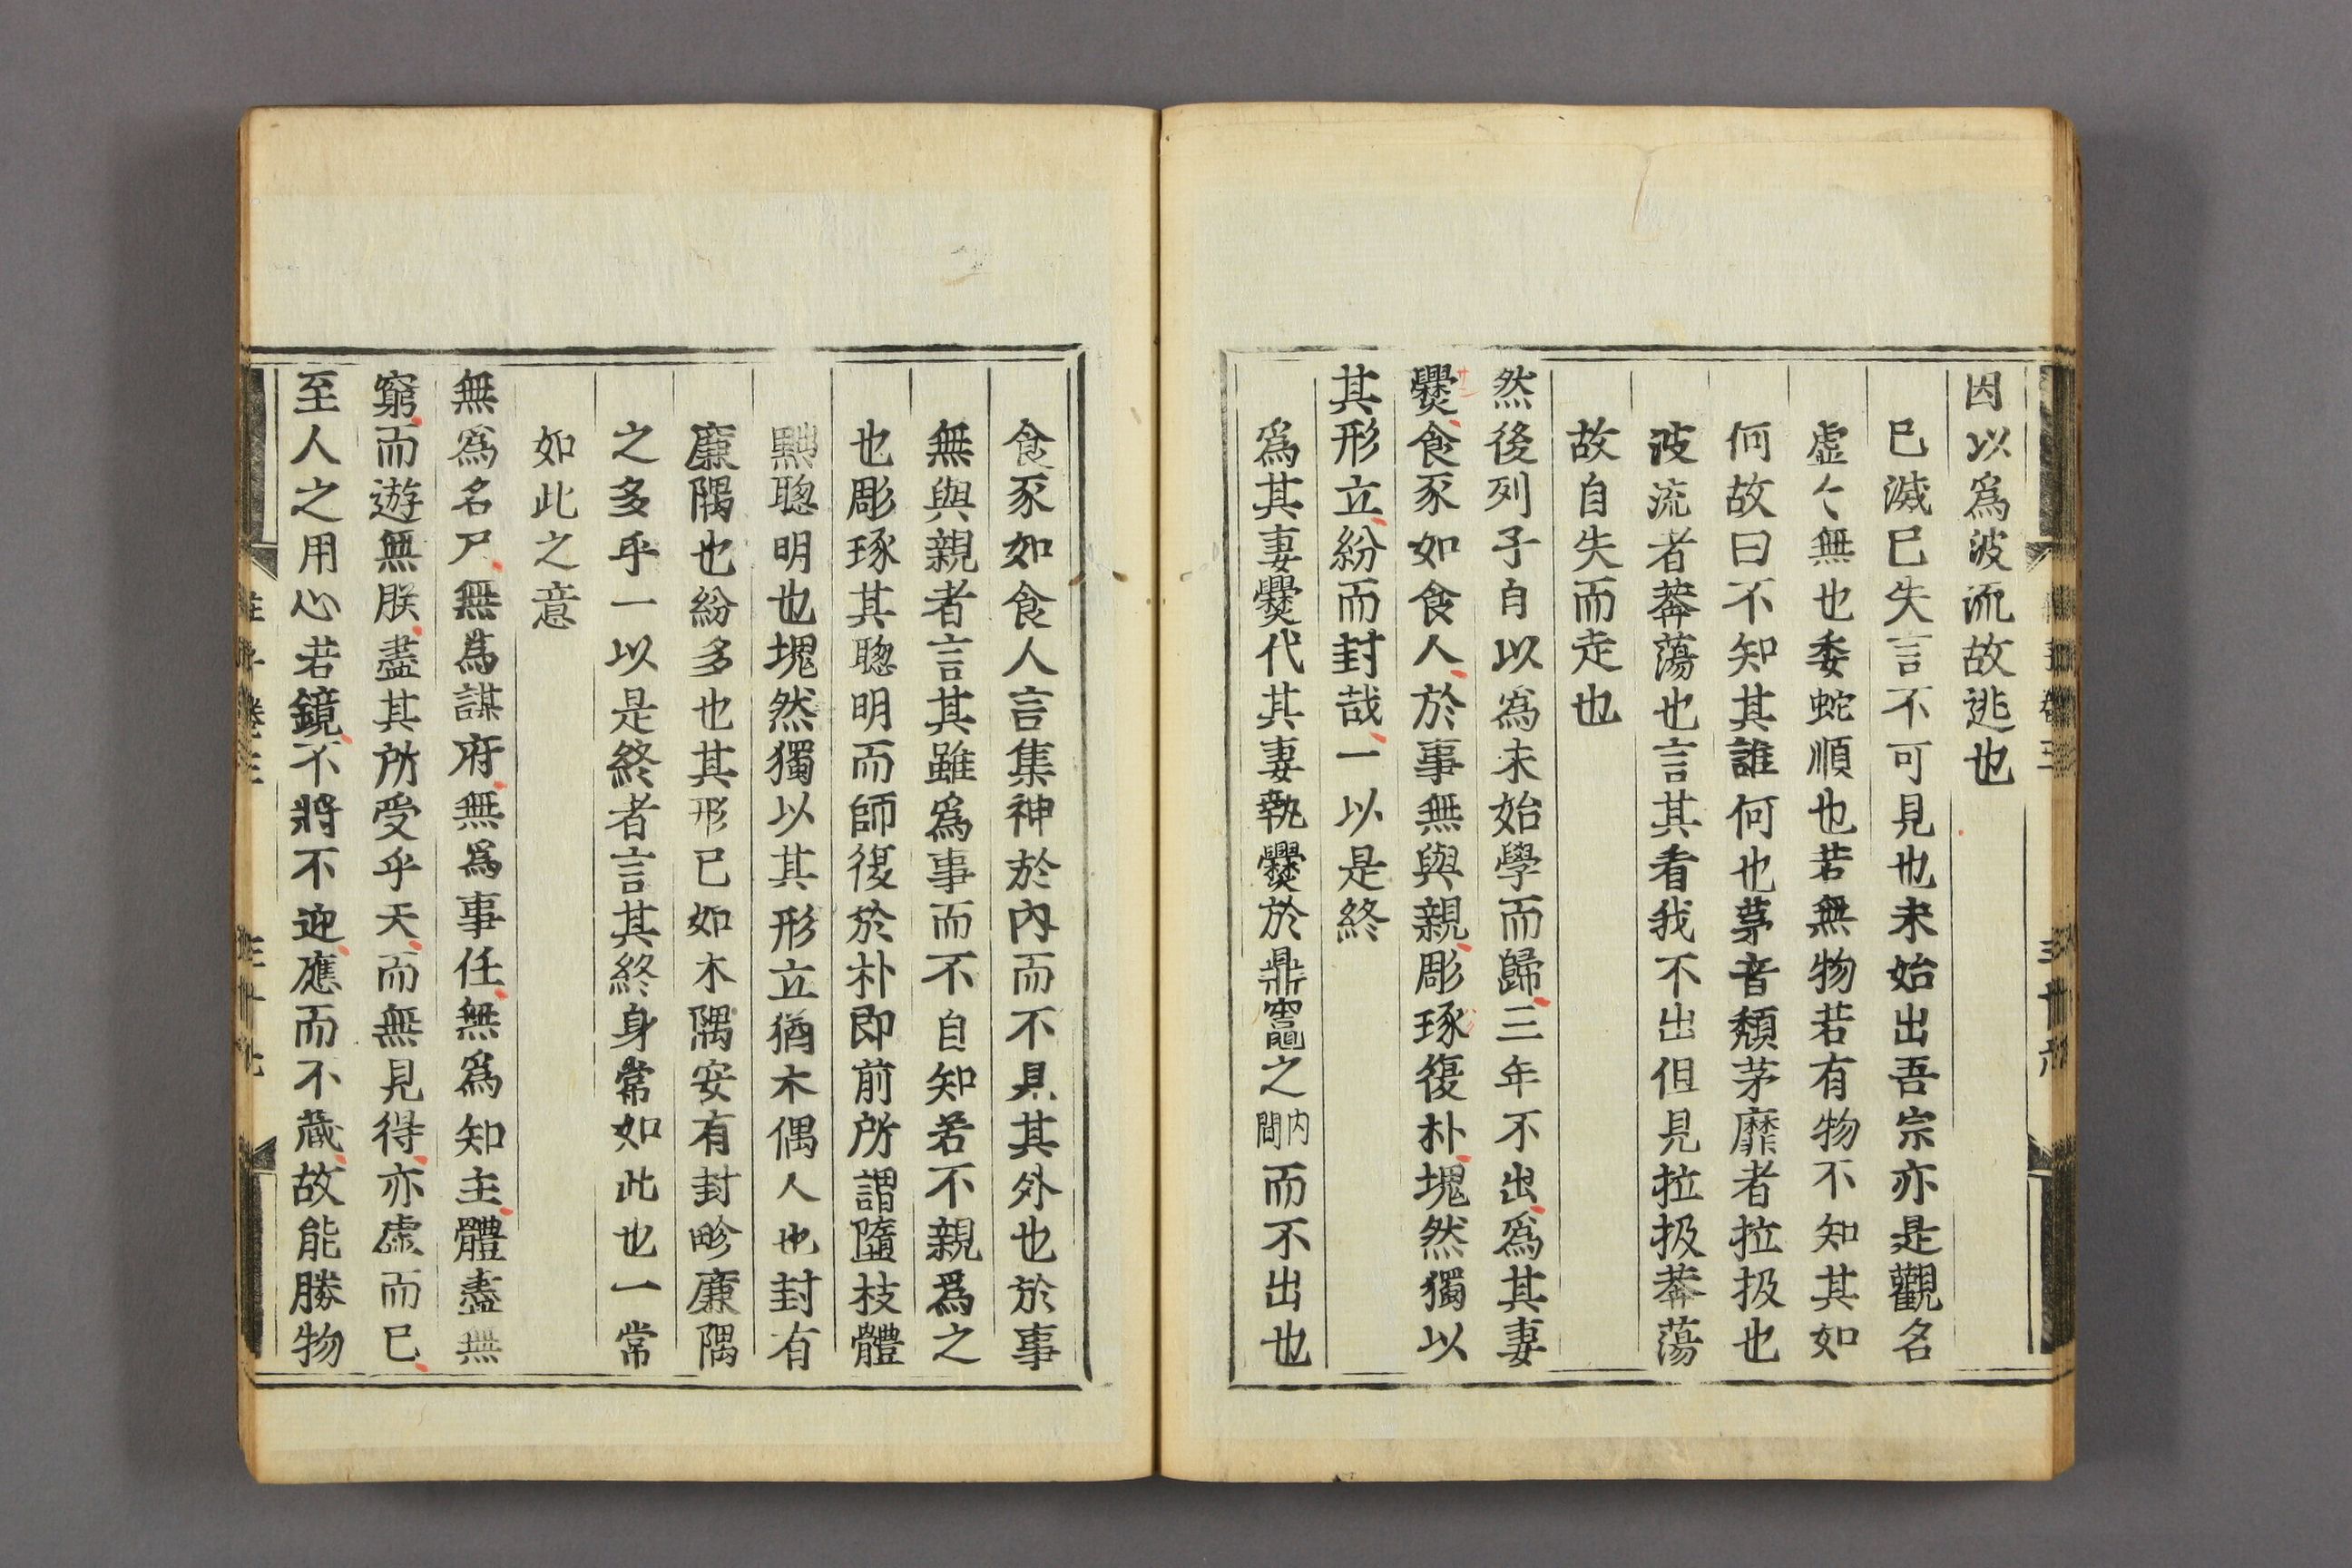 因以爲波流故逃也
已滅已失言不可見也未始出吾宗亦是觀名
虛〻無也委蛇順也若無物若有物不知其如
何故曰不知其誰何也茅音頹茅靡者拉扱也
波流者莾蕩也言其看我不出但見拉扱莾蕩
故自失而走也
然後列子自以爲未始學而歸三年不出爲其妻
爨食豕如食人於事無與親彫琢復朴塊然獨以
其形立紛而封哉一以是終
爲其妻爨代其妻執爨於鼎竈之內間而不出也
食豕如食人言集神於內而不見其外也於事
無與親者言其雖爲事而不自知若不親爲之
也彫琢其聰明而師復於朴即前所謂墮枝體
黜聰明也塊然獨以其形立猶木偶人也封有
廉隅也紛多也其形已如木隅安有封畛廉隅
之多乎一以是終者言其終身常如此也一常
如此之意
無爲名尸無爲謀府無爲事任無爲知主體盡無
窮而遊無朕盡其所受乎天而無見得亦虛而已
至人之用心若鏡不將不迎應而不藏故能勝物